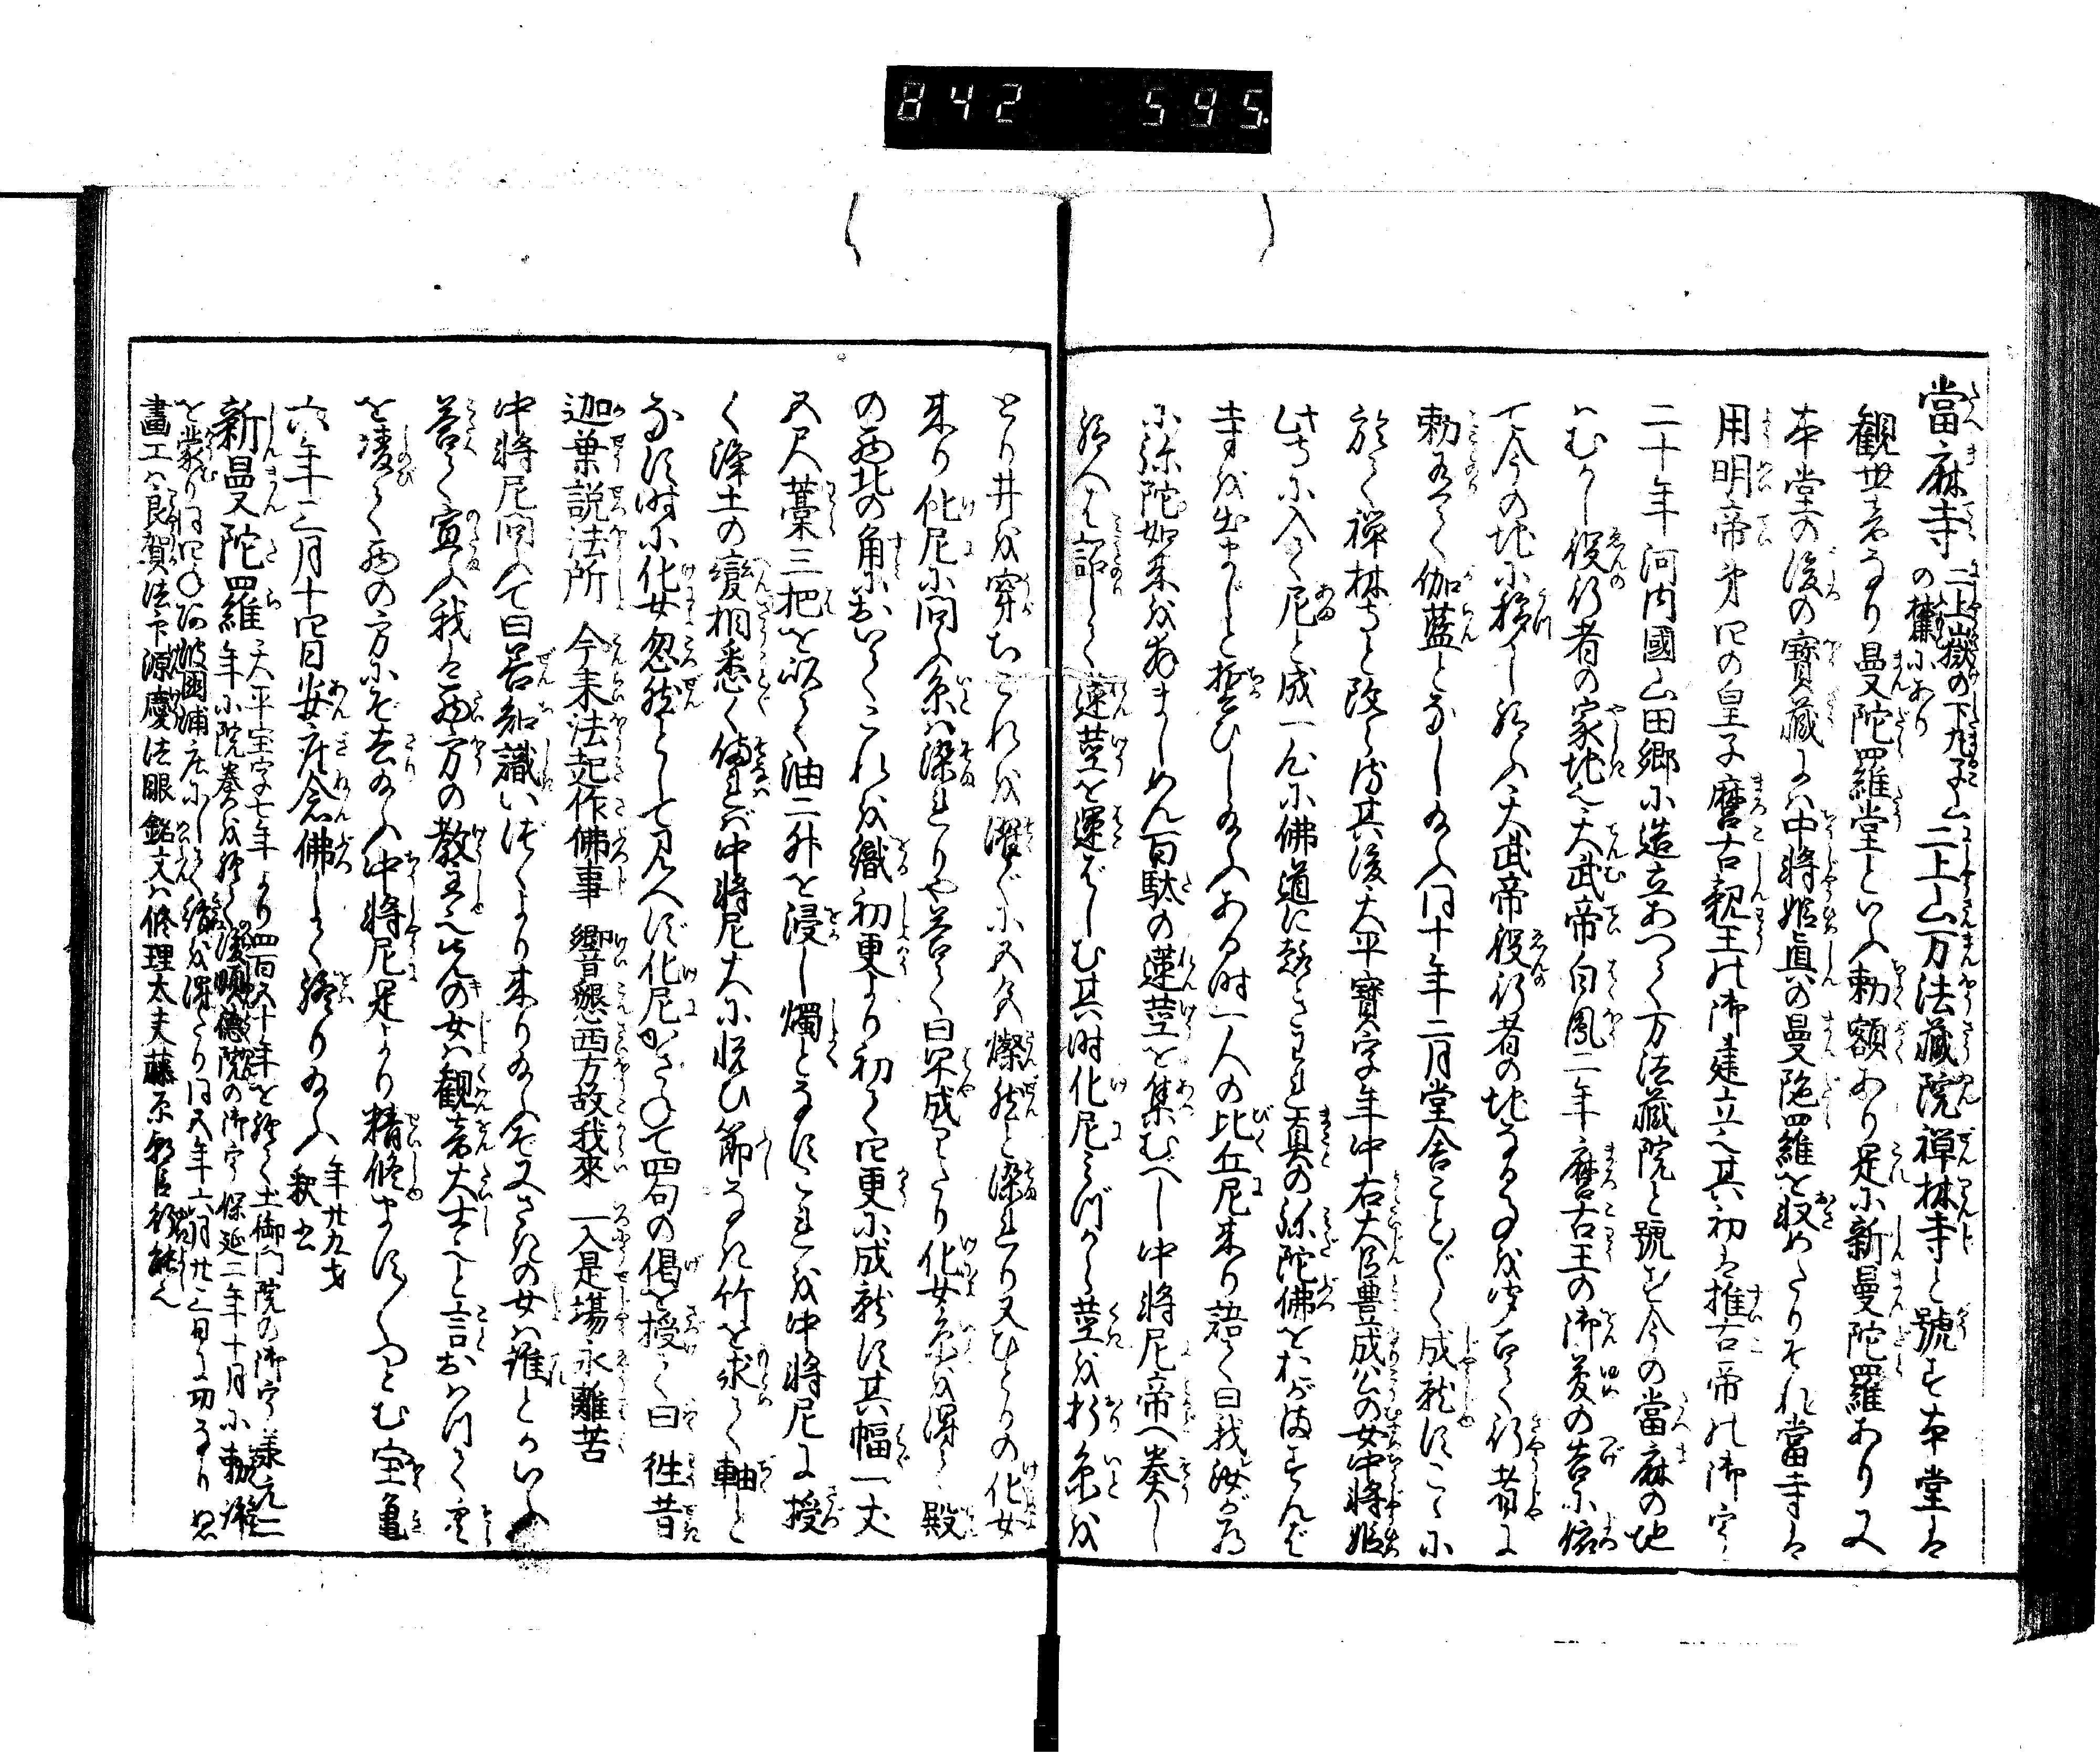 842 595.
當麻寺 二上嶽の下九子山の麓にあり 二上山万法藏院禅林寺と號す本堂は
観世音なり曼陀羅堂といふ勅額あり是に新曼陀羅あり又
本堂の後の寳藏には中将姫真の曼陀羅を収めたりそれ當寺は
用明帝第四の皇子麿古親王の御建立也其初は推古帝の御宇
二十年河内國山田郷に造立あつて万法藏院と號す今の當麻の地
はむかし役行者の家地也天武帝白鳳二年麿古王の御夢の告に依
て今の地に移し給ふ天武帝役行者の地なる事を聞召て行者に
勅有て伽藍となし給ふ同十年二月堂舎ことごとく成就すこゝに
於て禅林寺と改らる其後天平寳字年中右大臣豊成公の女中将姫
此寺に入て尼と成一心に佛道に趣きわれ真の弥陀佛をおがまずんば
寺を出まじと誓ひし給ふある時一人の比丘尼来り語て曰我汝が為
に弥陀如来を拝ましめん百駄の蓮茎を集むべし中将尼帝へ奏し
給へば詔して蓮茎を運ばしむ其時化尼みづから茎を折糸を
とり井を穿ちこれを濯ぐに五色燦然と染れり又ひとりの化女
来り化尼に問ふ糸は染れりや答て曰早成りたり化女糸を得て殿
の西北の角においてこれを織初更より初て四更に成就す其幅一丈
五尺藁三把を以て油二升を浸し燭となすこれを中将尼に授
く浄土の變相悉く備れば中将尼大に悦び節なき竹を求て軸と
なす時に化女忽然として見へず化尼かさねて四句の偈を授て曰 徃昔
迦葉説法所 今来法起作佛事 響懇西方故我來 一入是場永離苦
中将尼問て曰善知識いづくより来り給ふぞ又さきの女は誰とかいふ
答て宣ふ我は西方の教主也先の女は観音大士也と言おはつて雲
を凌て西の方にぞ去給ふ中将尼是より精修ますますつとむ宝亀
六年三月十四日安座念佛して終り給ふ 年廿九才 釈書
新曼陀羅 天平宝字七年より四百五十年を経て土御門院の御宇
年に院奏を経て後順徳院の御宇保延二年十月に勅許
を蒙り
畫工は良賀法下源慶法眼銘文は修理太夫藤原朝臣行能也